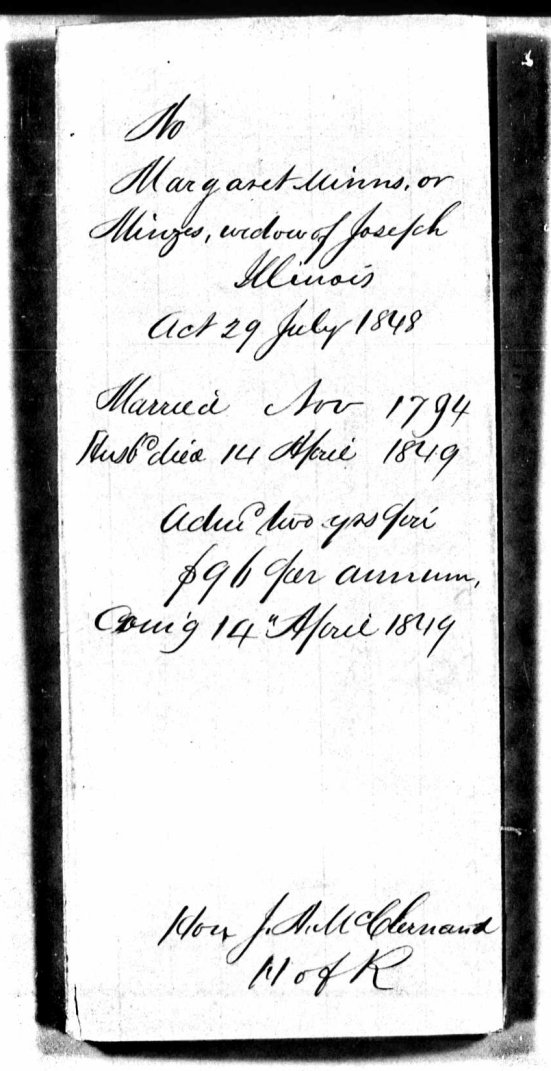 No
Margaret Minns, or
Minzes, widow of Joseph
Illinois
Act 29 July 1848
Married Nov 1794
Husbd died 14 April 1849
Admd two yrs pri
$96 per annum,
Com'g 14" April 1849
Hon J. A. McClernand
H of R